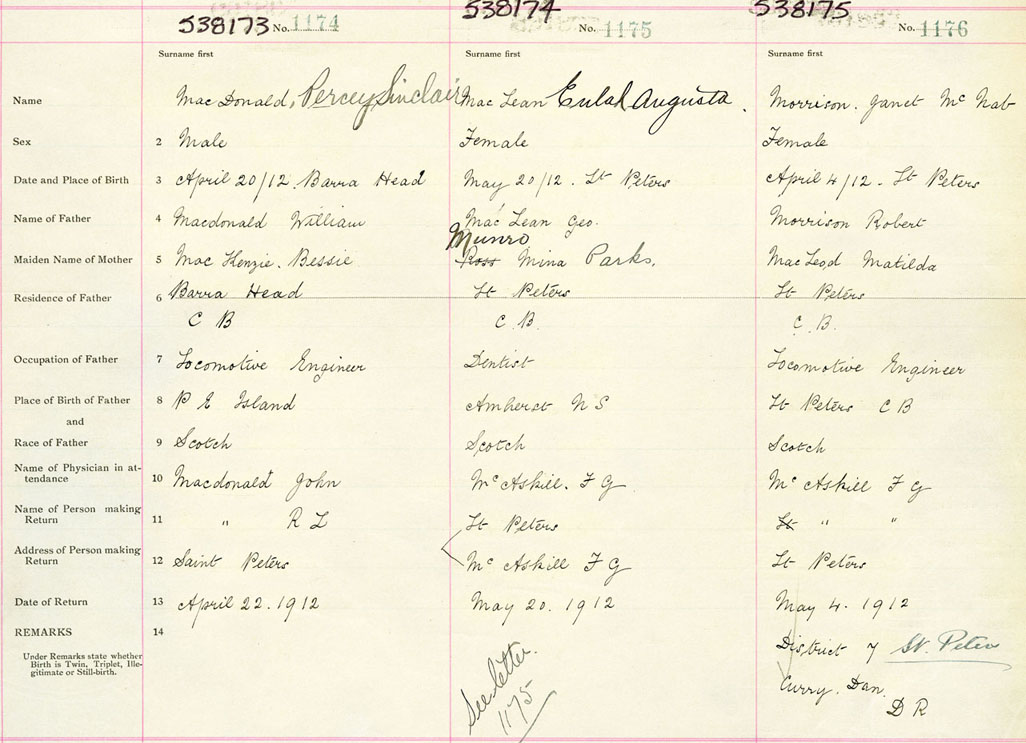 538173 No. 1174 538174 No. 1175 538175 No. 1176
Surname first Surname first Surname first
Name Mac Donald, Percey Sinclair Mac Lean Eulal Augusta. Morrison. Janet Mc Nab
Sex 2 Male Female Female
Date and Place of Birth 3 April 20/12. Barra Head May 20/12. St Peters April 4/12 - St Peters
Name of Father 4 Macdonald William Mac Lean Geo. Morrison Robert
Munro
Maiden Name of Mother 5 Mac Kenzie. Bessie Ross Mina Parks. MacLeod Matilda
Residence of Father 6 Barra Head St Peters St Peters
C B C. B. C. B.
Occupation of Father 7 Locomotive Engineer Dentist Locomotive Engineer
Place of Birth of Father 8 P E Island Amherst N S St Peters C B
and
Race of Father 9 Scotch Scotch Scotch
Name of Physician in at-
tendance 10 Macdonald John Mc Askill. F G Mc Askill F G
Name of Person making
Return 11 " R L St Peters St " "
Address of Person making
Return 12 Saint Peters Mc Askill F G St Peters
Date of Return 13 April 22. 1912 May 20. 1912 May 4. 1912
REMARKS 14
Under Remarks state whether
Birth is Twin, Triplet, Ille-
gitimate or Still-birth.
See letter.
1175
District 7 St. Peter
Curry. Dan.
D R